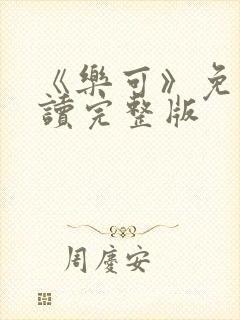 《樂可》免
讀完整版
周慶安